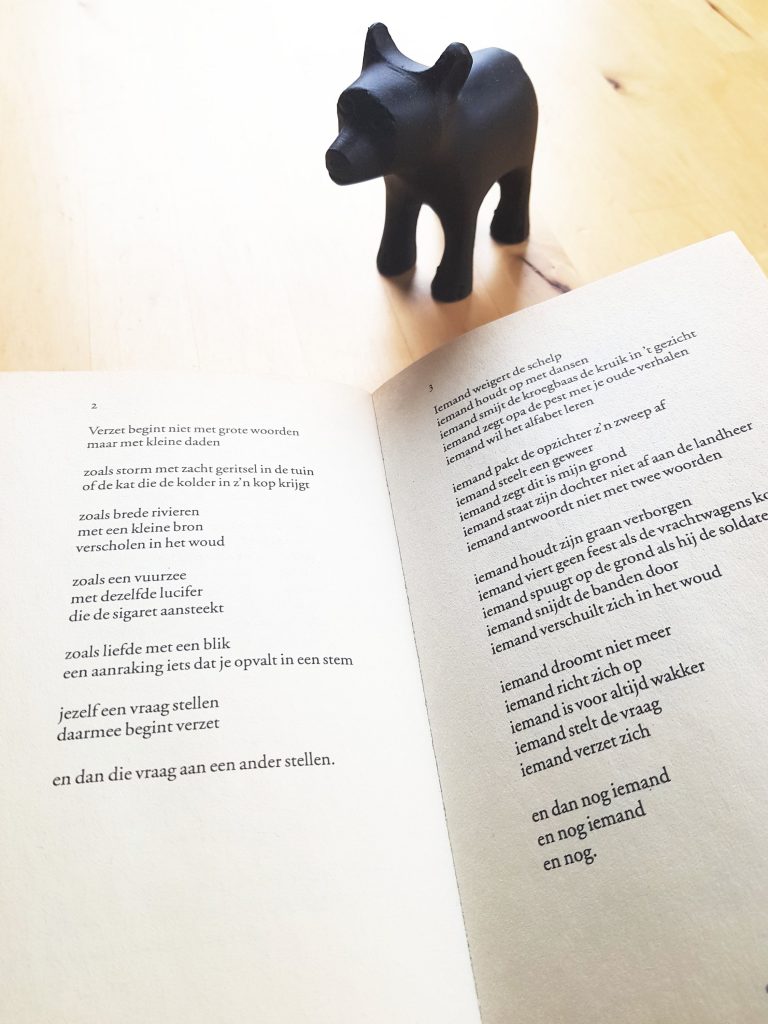 2
Verzet begint niet met grote woorden
maar met kleine daden
zoals storm met zacht geritsel in de tuin
of de kat die de kolder in z'n kop krijgt
zoals brede rivieren
met een kleine bron
verscholen in het woud
zoals een vuurzee
met dezelfde lucifer
die de sigaret aansteekt
zoals liefde met een blik
een aanraking iets dat je opvalt in een stem
jezelf een vraag stellen
daarmee begint verzet
en dan die vraag aan een ander stellen.
3
Iemand weigert de schelp
iemand houdt op met dansen
iemand smijt de kroegbaas de kruik in 't gezicht
iemand zegt opa de pest met je oude verhalen
iemand wil het alfabet leren
iemand pakt de opzichter z'n zweep af
iemand steelt een geweer
iemand zegt dit is mijn grond
iemand staat zijn dochter niet af aan de landheer
iemand antwoordt niet met twee woorden
iemand houdt zijn graan verborgen
iemand viert geen feest als de vrachtwagens
iemand spuugt op de grond als hij de
iemand snijdt de banden door
iemand verschuilt zich in het woud
iemand droomt niet meer
iemand richt zich op
iemand is voor altijd wakker
iemand stelt de vraag
iemand verzet zich
en dan nog iemand
en nog iemand
en nog.